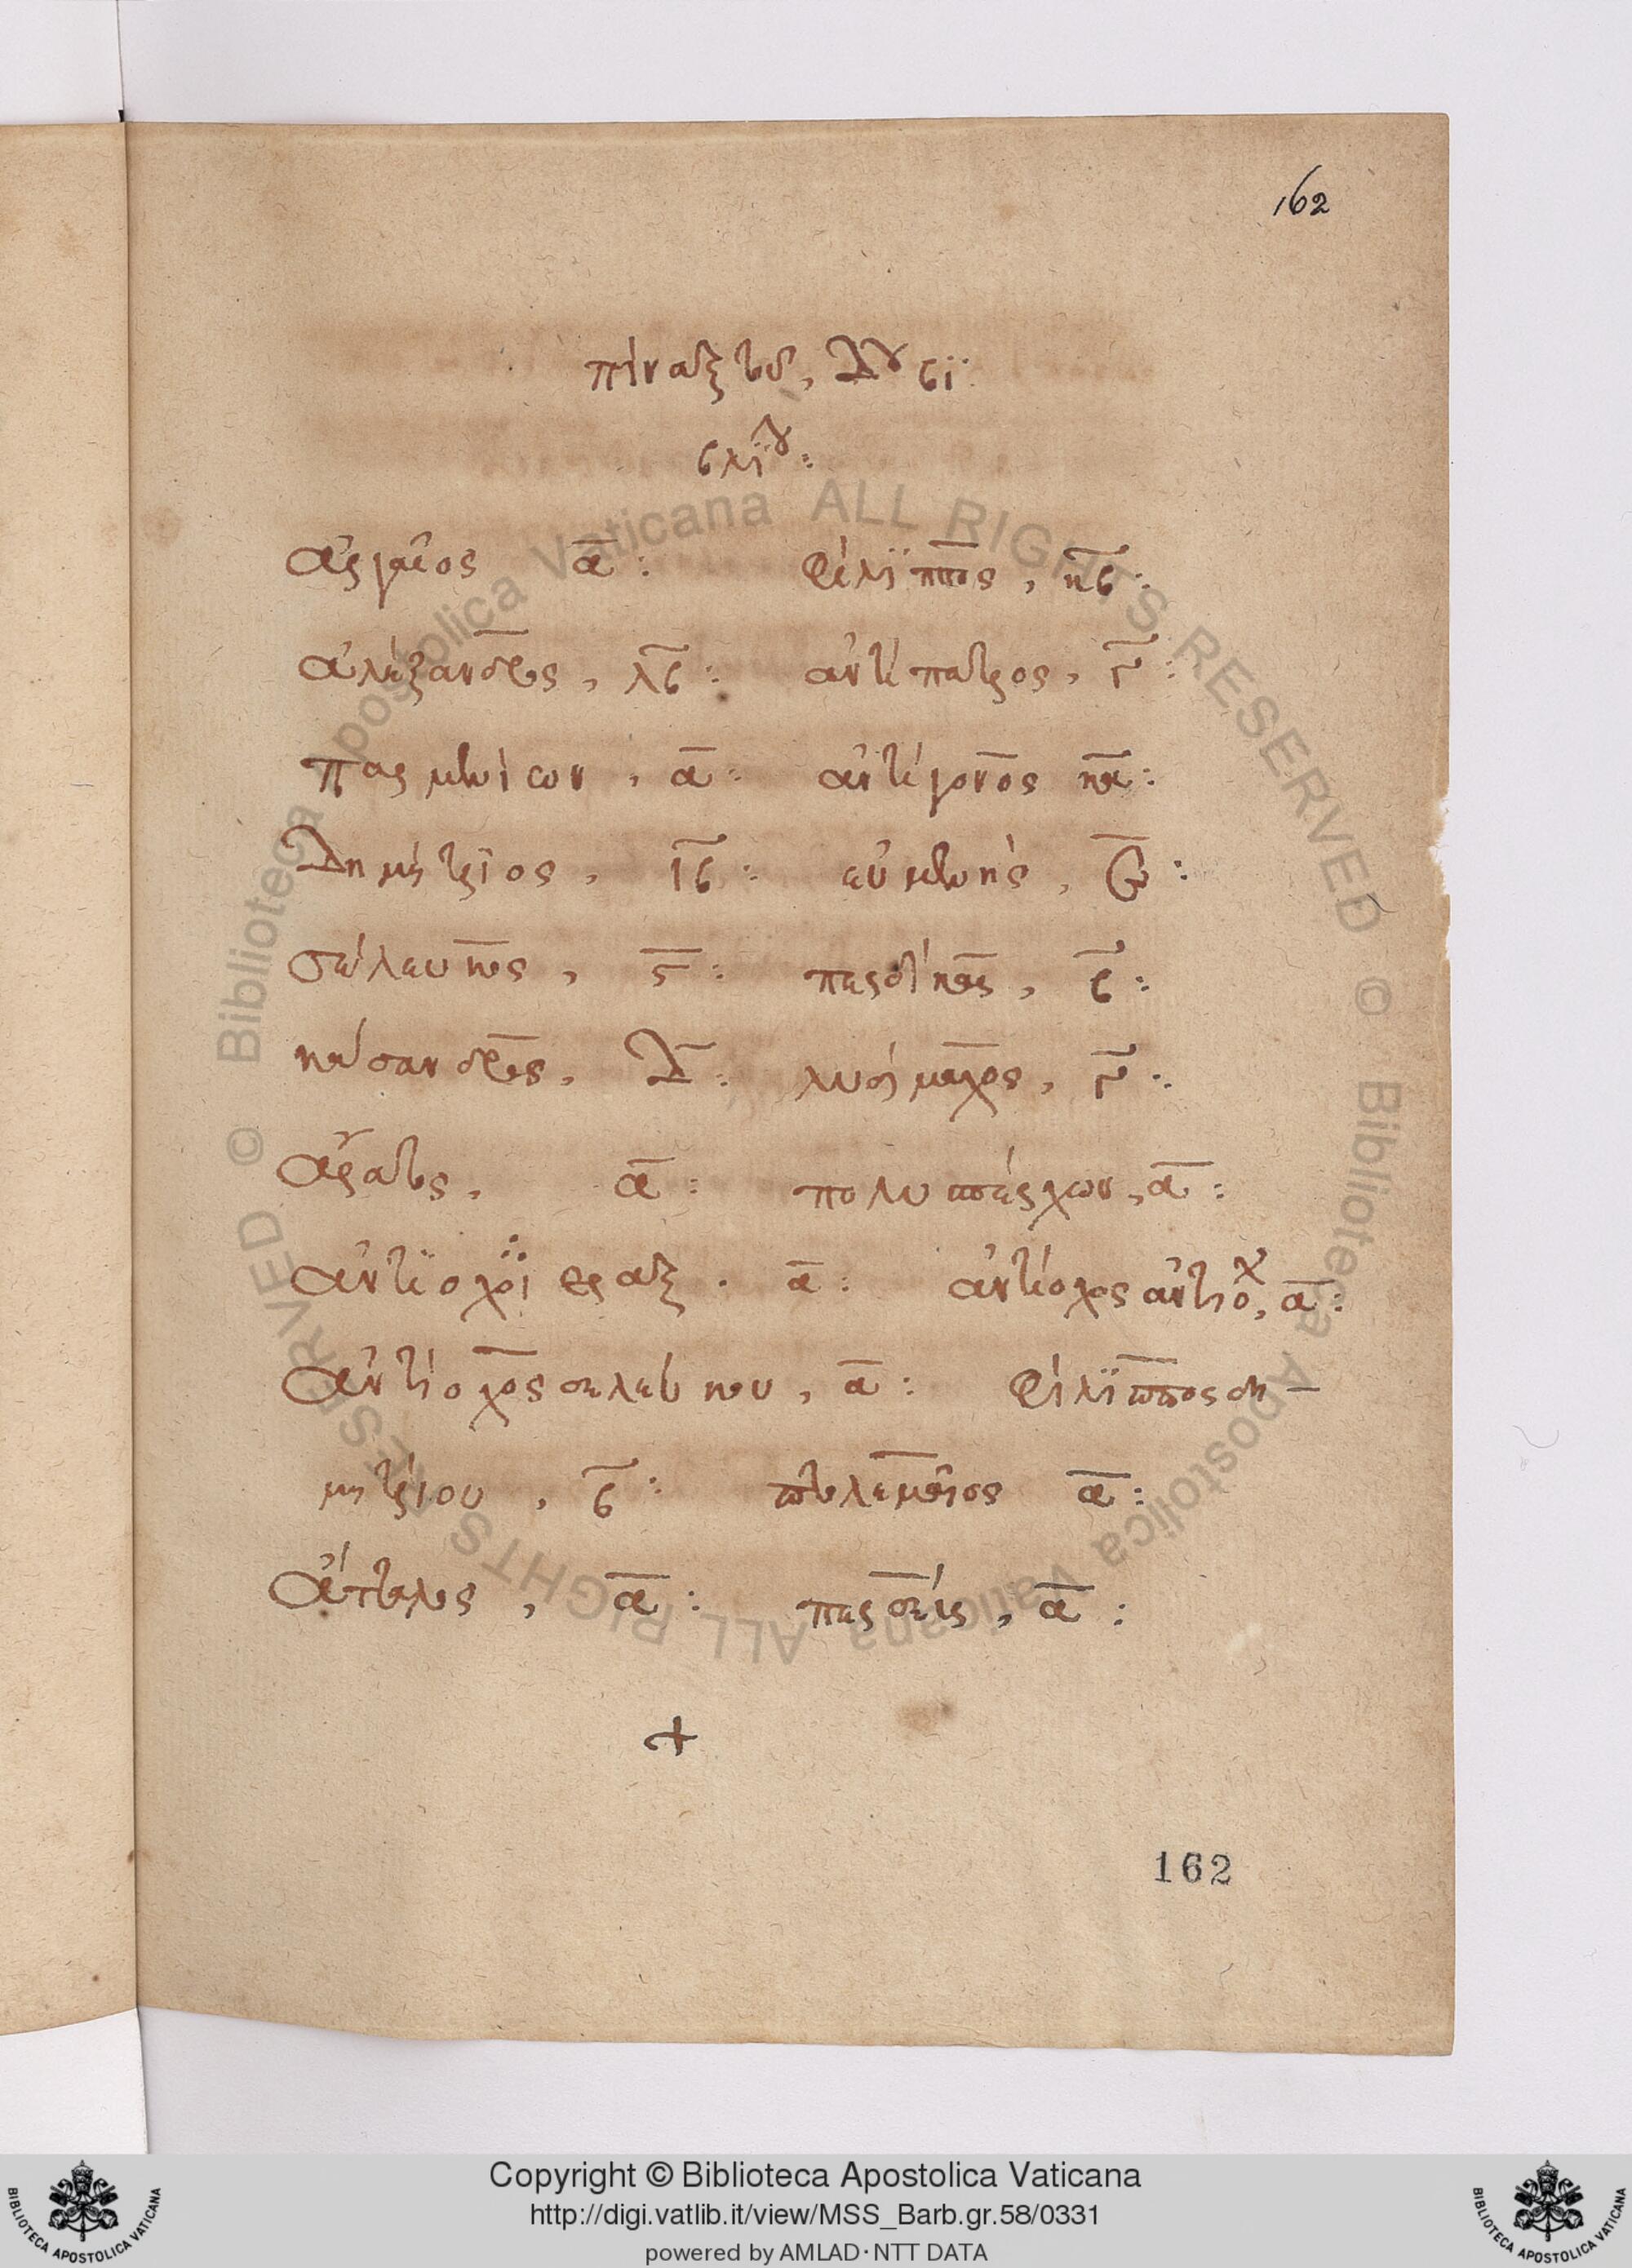 162
πίναξ τοῦ, Δου βϊ
βλίου:
ἀργαῖος α̅: φίλϊππος, κβ:
ἀλέξανδρος, λβ: ἀντίπατρος, γ:
παρμενίων, α̅: ἀντίγονος κα:
Δημήτρϊος, ιβ: εὐμένης,
σέλευκος, ϛ: περδίκας, β:
κάσανδρος, Δ: λυσίμαχος, γ:
ἄρατος, α̅: πολυσπέρχων, α̅:
ἀντίοχοϊ εραξ. α̅: ἀντίοχος ἀντιόχ, α̅:
ἀντίοχος σελεύκου, α̅: φίλϊππος δη-
μητρίου, β: πτολεμαῖος α̅:
ἄτταλος, α̅: περσεύς, α̅:
+
162
Copyright © Biblioteca Apostolica Vaticana
http://digi.vatlib.it/view/MSS_Barb.gr.58/0331
powered by AMLAD·NTT DATA
BIBLIOTECA APOSTOLICA VATICANA
BIBLIOTECA APOSTOLICA VATICANA
© Biblioteca Apostolica Vaticana ALL RIGHTS RESERVED © Biblioteca Apostolica Vaticana ALL RIGHTS RESERVED